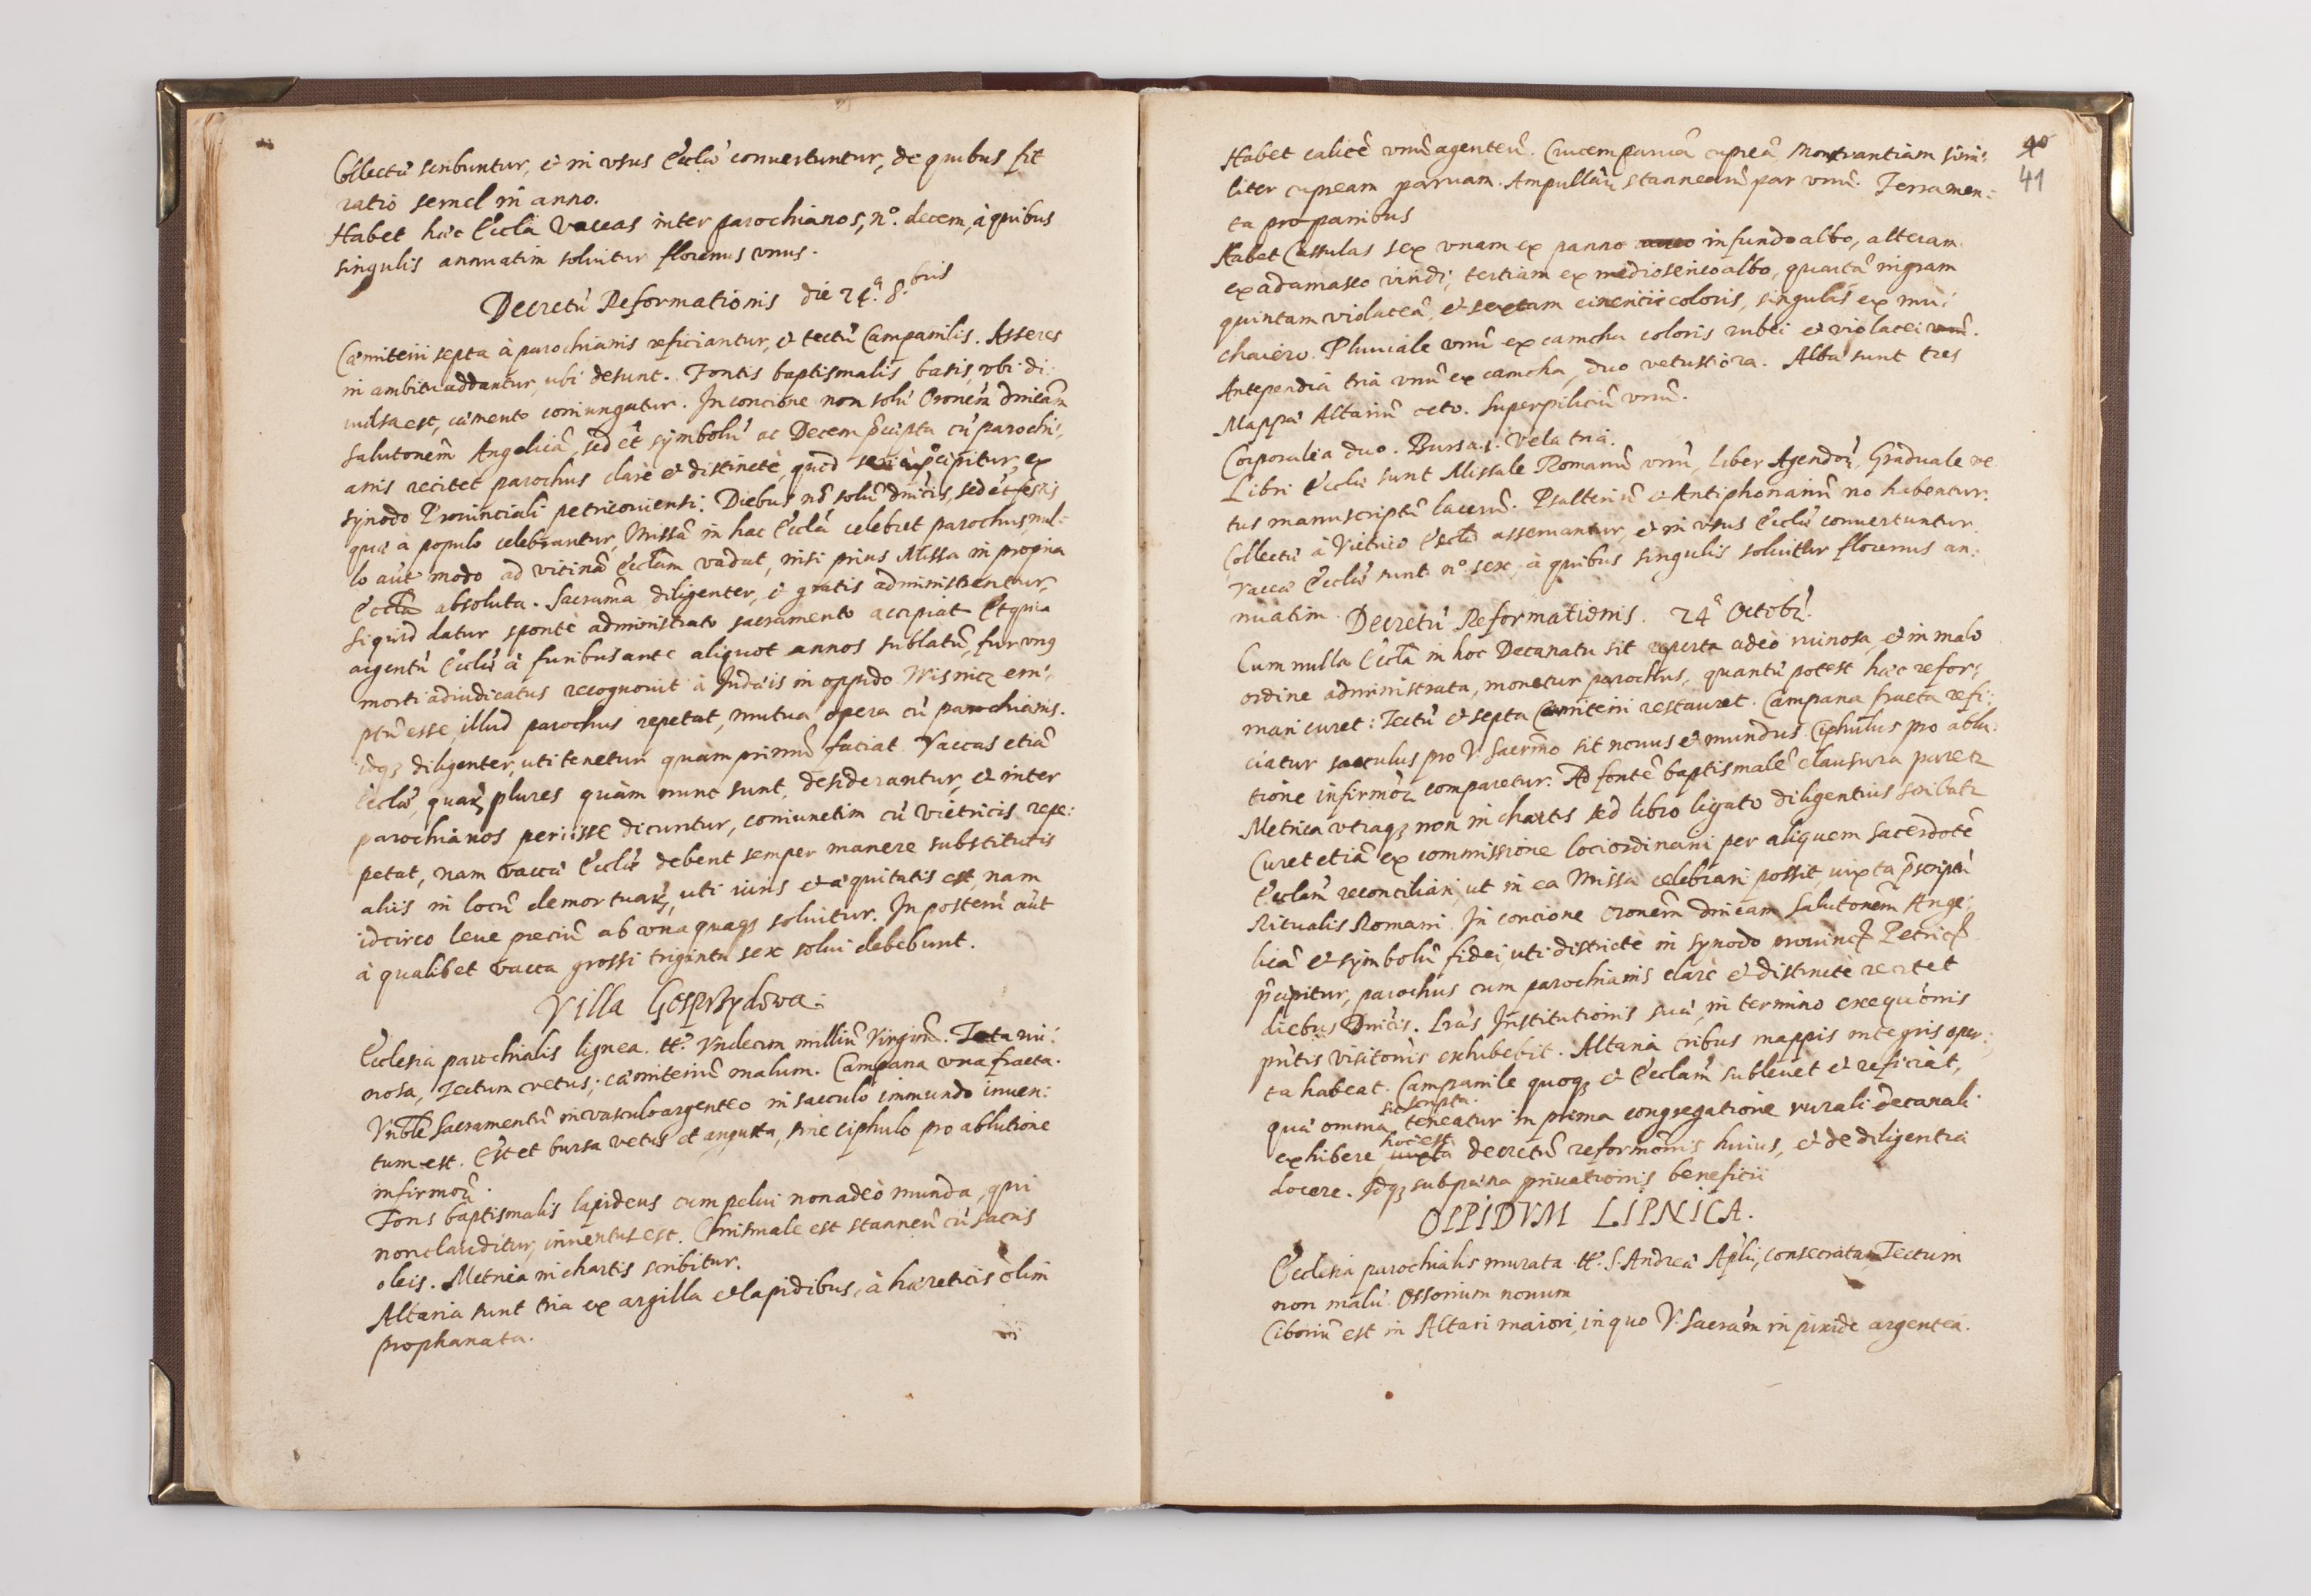 Collectæ scribuntur, et in vsus Eccliæ conuertuntur, de quibus fit
ratio semel in anno.
Habet hæc Eccla Vaccas inter parochianos, nº. decem, à quibus
singulis annuatim soluitur florenus vnus.
Decretũ Reformationis die 24ª. 8.bris
Cæmiterii septa à parochianis reficiantur, et tectũ Campanilis. Asseres
in ambitu addantur, ubi desunt. Fontis baptismalis basis, vbi di-
uulsa est, cæmento coniungatur. In concione non solũ Oronẽm dnicãm
salutonẽm Angelicã, sed ẽt symbolũ ac Decem p̃cepta cũ parochi-
anis recitet parochus clarè et distinctè, quod p̃cipitur, ex
synodo Prouinciali petricouiensi. Diebus nõ solũ dnicis, sed ẽt festis
quæ à populo celebrantur, Missã in hac Eccla celebret parochus, nul-
lo aũt modo ad vicinã Ecclam vadat, nisi prius Missa in propria
Eccla absoluta. Sacramã diligenter, et gratis administrentur,
si quid datur spontè administrato sacramento accipiat. Et quia
argentũ Eccliæ à furibus ante aliquot annos sublatũ, fur vnus
morti adiudicatus recognouit à Judæis in oppido Wisnicz em-
ptũ esse, illud parochus repetat, mutua opera cũ parochianis.
idq; diligenter, uti tenetur quàm primũ faciat. Vaccas etiã
Eccliæ, quarũ plures quàm nunc sunt, desiderantur, et inter
parochianos periisse dicuntur, coniunctim cũ vietricis repe:
petat, nam vaccæ Eccliæ debent semper manere substitutis
aliis in locũ demortuarũ, uti iuris et æquitatis est, nam
idcirco leue preciũ ab vna quaq; soluitur. In posterũ aũt
à qualibet vacca grossi triginta sex solui debebunt.
Villa Gosprzydowa.
Ecclesia parochialis lignea. tt. Vndecim milliũ Virginũ. Tota rui-
nosa, Tectum vetus; cæmiteriũ malum. Campana vna fracta.
Vnble Sacramentũ in vasculo argenteo in sacculo immundo inuen:
tum est. Est et bursa vetus et angusta, sine ciphulo pro ablutione
infirmorũ.
Fons baptismalis lapideus cum pelui non adeò munda, qui
non clauditur, inuentus est. Chrismale est stanneũ cũ sacris
oleis. Metrica in chartis scribitur.
Altaria sunt tria ex argilla et lapidibus, à hæreticis olim
prophanata.
40
41
Habet calicẽ vnũ argenteũ. Crucem paruã cupreã Monstrantiam simi-
liter cupream paruam. Ampullarũ stannearũ par vnũ. Ferramen-
ta pro panibus
Habet Casulas sex vnam ex panno in fundo albo, alteram
ex adamasco viridi, tertiam ex medio serico albo, quartã nigram
quintam violaceã, et sextam cinericii coloris, singulas ex mu-
chaiero. Pluuiale vnũ ex camcha coloris rubei et violacei.
Antependia tria vnũ ex camcha, duo vetustiora. Albæ sunt tres
Mappæ Altariũ octo. Superpiliciũ vnũ.
Corporalia duo. Bursa 1. Vela tria.
Libri Eccliæ sunt Missale Romanũ vnũ, liber Agendorũ, Graduale ve
tus manuscriptũ lacerũ. Psalteriũ et Antiphonariũ nõ habentur.
Collectæ à Vietrico Eccliæ asseruantur, et in vsus Eccliæ conuertuntur
Vaccæ Eccliæ sunt nº sex, à quibus singulis soluitur florenus an-
nuatim. Decretũ Reformationis. 24ª Octobr.
Cum nulla Eccla in hoc Decanatu sit reperta adeò ruinosa, et in malo
ordine administrata, monetur parochus, quantũ potest hæc refor-
mari curet: Tectũ et septa Cæmiterii restauret. Campana fracta refi-
ciatur sacculus pro V. Sacrmo sit nouus et mundus. Ciphulus pro ablu-
tione infirmorũ comparetur. Ad fontẽ baptismalẽ clausura paretur
Metrica vtraq; non in chartis sed libro ligato diligentius scribatur
Curet etiã ex commissione loci ordinarii per aliquem sacerdotẽ
Ecclam reconciliari, ut in ea Missa celebrari possit, iuxta p̃scriptũ
Ritualis Romani. In concione oronẽm dnicam Salutonẽm Ange-
licã et symbolũ fidei, uti districtè in synodo prouinc. Petric.
p̃cipitur, parochus cum parochianis clarè et distinctè recitet
diebus Dnicis. Lras Institutionis suæ, in termino exequonis
pntis visitonis exhibebit. Altaria tribus mappis integris oper-
ta habeat. Campanile quoq; et Ecclam subleuet et reficiat,
quæ omnia suscripta teneatur in prima congregatione rurali decanali
exhibere, hoc est decretũ reformonis huius, et de diligentia
docere. Idq; sub pæna priuationis beneficii
OPPIDVM LIPNICA.
Ecclesia parochialis murata tt. S. Andreæ Apli, consecrata. Tectum
non malũ. Ossorium nouum
Ciboriũ est in Altari maiori, in quo V. Sacram in pixide argentea.